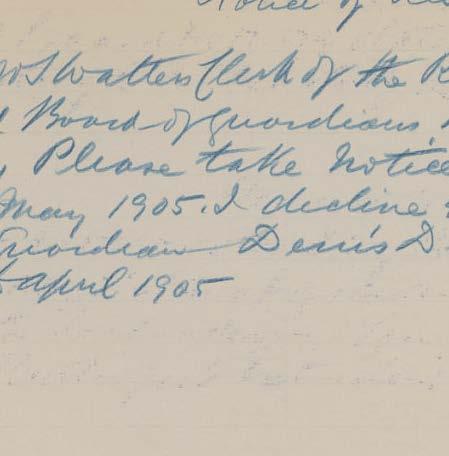 Notice of
Walters Clerk of the R
Board of Guardians
Please take Notice
May 1905. I decline
Guardian Denis D
April 1905